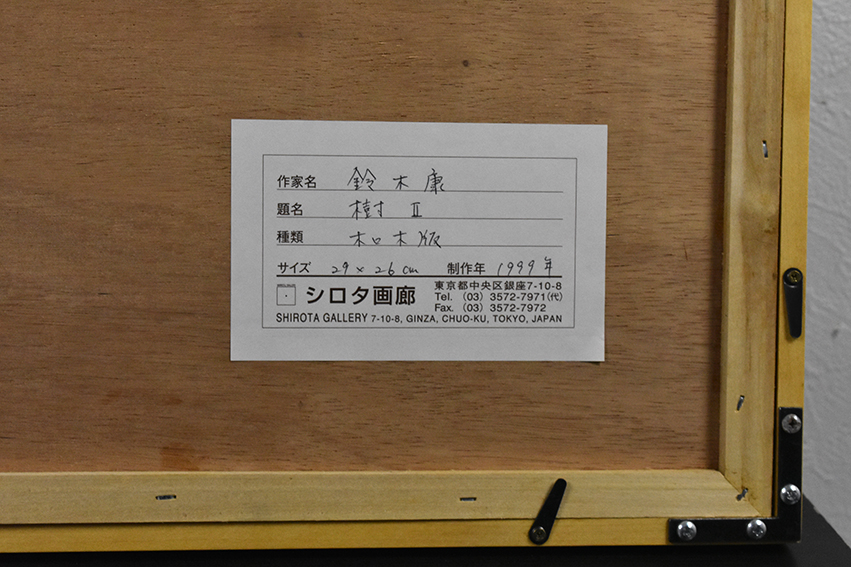 作家名 鈴木康
題名 樹 Ⅱ
種類 木口木版
サイズ 29×26cm 制作年 1999年
シロタ画廊
東京都中央区銀座7-10-8
Tel. (03) 3572-7971(代)
Fax. (03) 3572-7972
SHIROTA GALLERY 7-10-8, GINZA, CHUO-KU, TOKYO, JAPAN